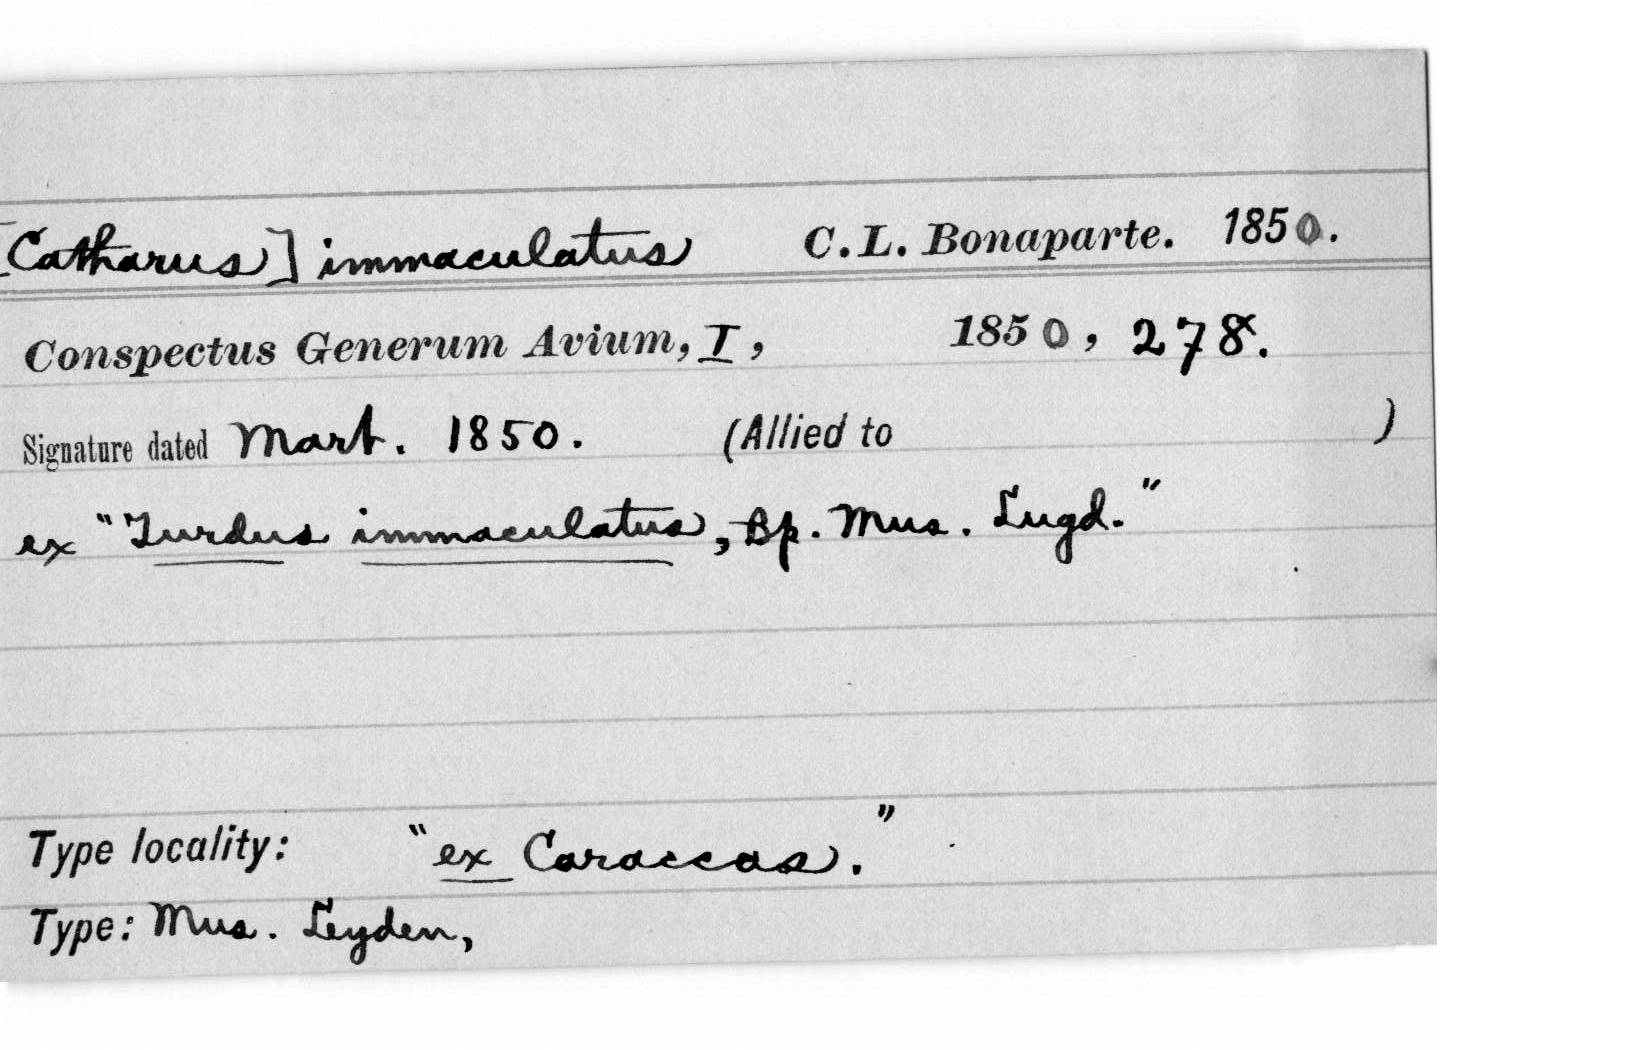 [Catharus] immaculatus C. L. Bonaparte. 1850.
Conspectus Generum Avium, I, 1850, 278.
Signature dated Mart. 1850. (Allied to )
ex "Turdus immaculatus, Bp. Mus. Lugd."
Type locality: "ex Caraccas."
Type: Mus. Leyden,